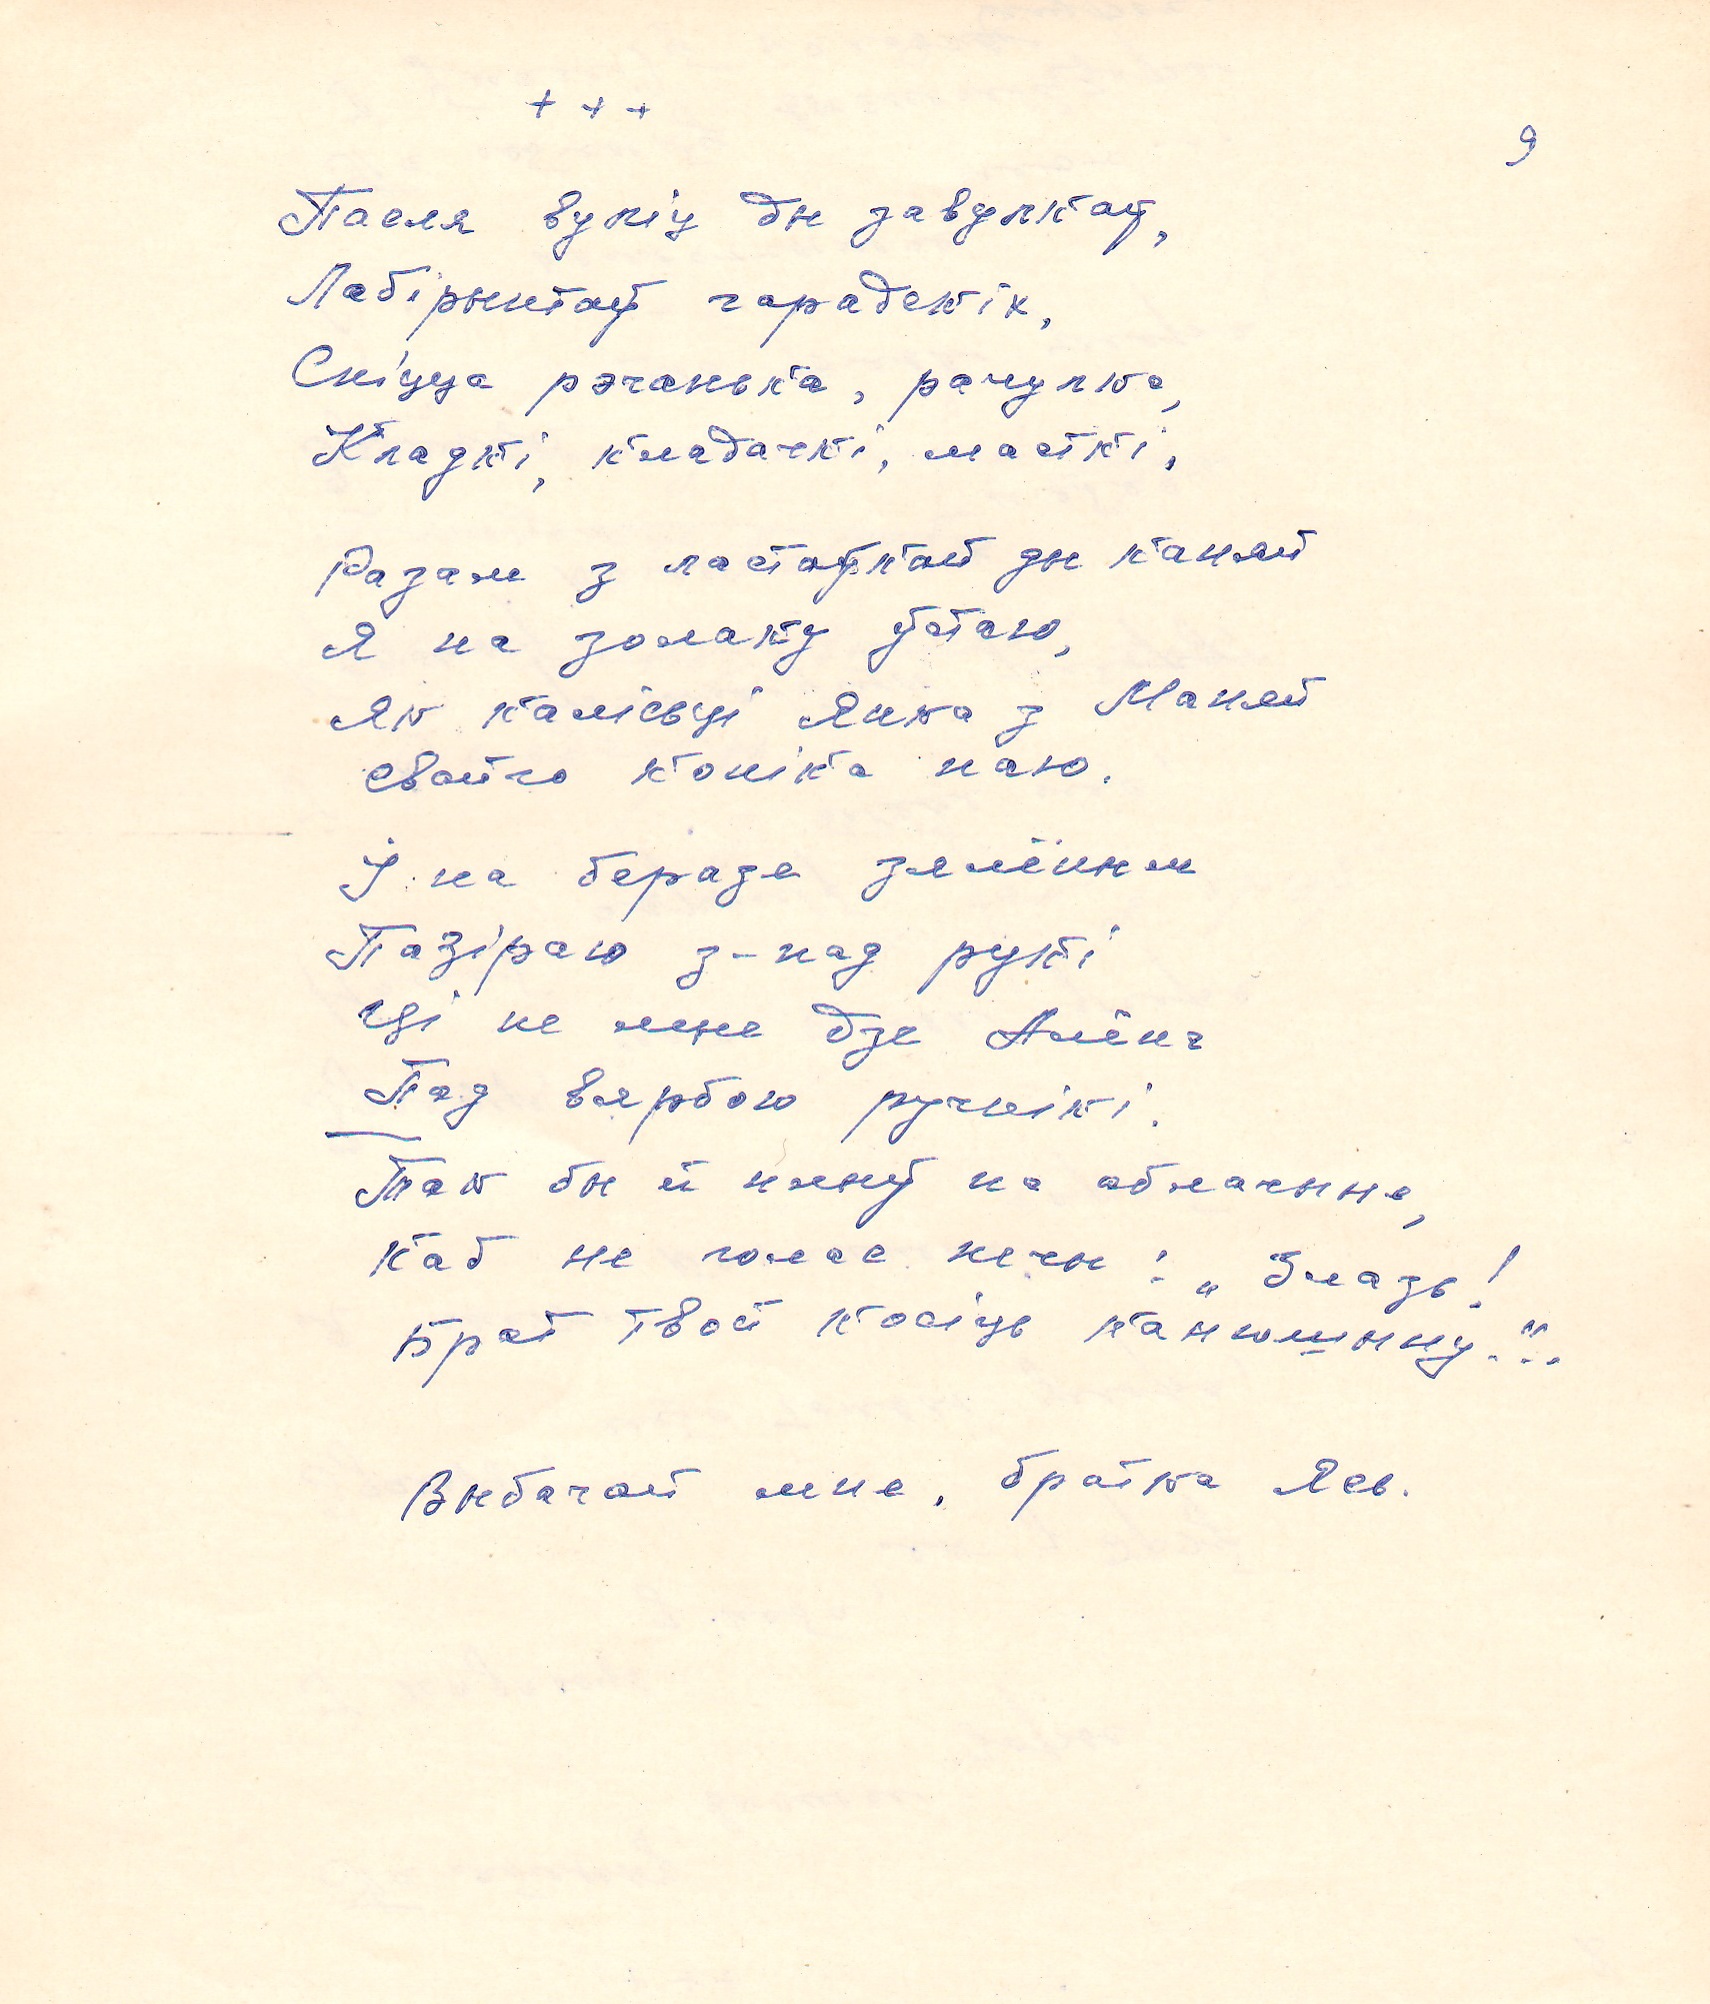 + + +
9
Пасля вуліц ды завулкаў,
Лабірынтаў гарадскіх,
Сніцца рэчанька, рачулка,
Кладкі, кладачкі, масткі.
Разам з ластаўкай ды каняй
Я на золаку ўстаю,
Як калісьці Янка з Маняй
свайго коніка паю.
І на беразе зялёным
Пазіраю з-пад рукі
Ці не мые дзе Алёна
Пад вярбою ручнікі.
Так бы й плыў на аблачынке,
Каб не голас нечы: „Злазь!
Брат твой косіць канюшыну..."
Выбачай мне, братка Ясь.